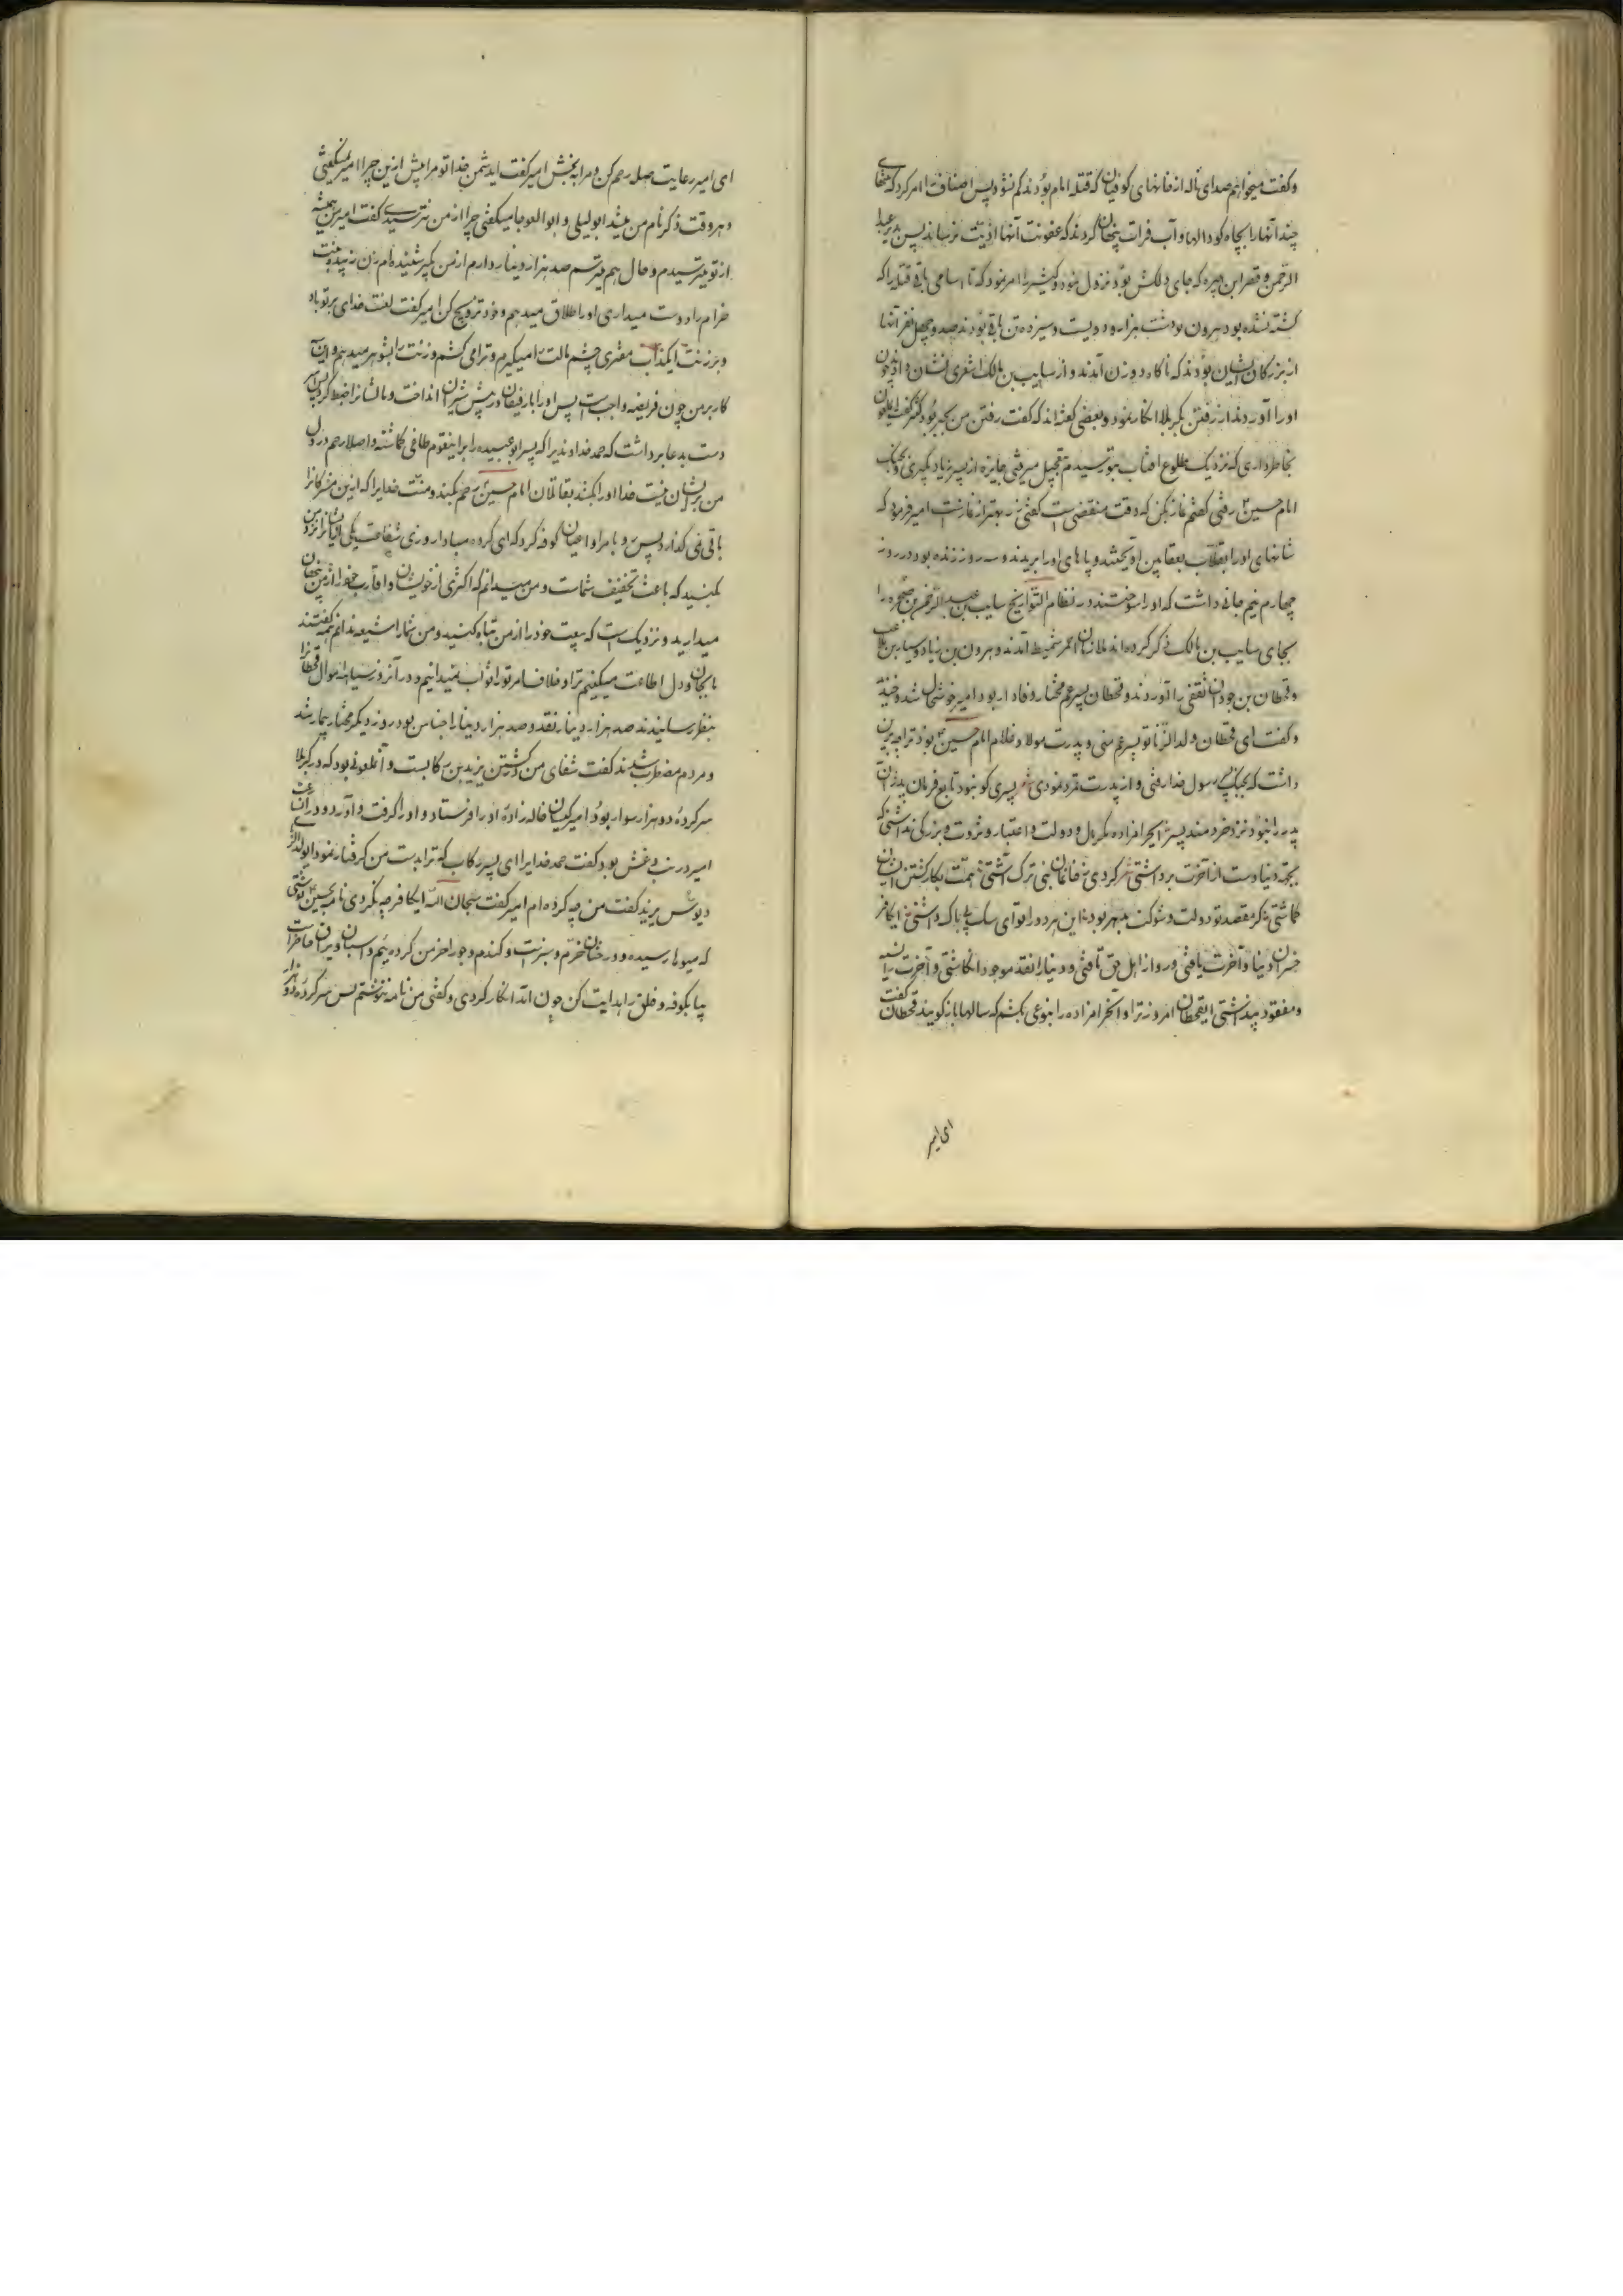 وکفت میخواهم صدای ناله از خانهای کوفیان که قتله امام بودند کم نشود پس اصناف را امر کرد که
چند آنها را بچاه کود الها و آب فرات پنهان کردند که عفونت آنها اذیت نرساند پس بدیر عبد
الرحمن و قصر ابن هبیره که جای دلکش بود نزول نمود و کثیر را امر نمود که تا اسامی باقی قتله را که
کشته نشده بود بیرون نوشت هزار و دویست و سیزده تن باقی بودند صد و چهل نفر آنها
از بزرکان ایشان بودند که ناکاه دو زن آمدند و از سایب بن مالک اشعری نشان دادند چون
او را آوردند از رفتن بکربلا انکار نمود و بعضی گفته اند که گفت رفتن من بجبر بود کثیر گفت ای ملعون
بخاطر داری که نزدیک طلوع افتاب بتو رسیدم بتعجیل میرفتی جایزه از پسر زیاد بگیری و بجنک
امام حسین رفتی گفتم نماز بکن که وقت منقضی است گفتی زر بهتر از نماز است امیر فرمود که
شانهای او را بقلاب بقصابین آویختند و پاهای او را بریدند و سه روز زنده بود در روز
چهارم نیم جانی داشت که او را سوختند در نظام التواریخ سایب بن عبد الرحمن بن صخره را
بجای سایب بن مالک ذکر کرده اند ملازمان احمر شمیط آمدند و هرون بن زیاد و سیار بن
و قحطان بن جودان ثقفی را آوردند و قحطان پسر عم مختار وفادار بود امیر خوشحال شد و خندید
و کفت ای قحطان ولد الزنا تو پسر عم منی و پدرت مولا و غلام امام حسین بود ترا چه بر این
داشت که بجنک پسر رسول خدا رفتی و از پدرت تمرد نمودی شعر پسری کو نبود تابع فرمان پدر آن
پدر را نبود نزد خردمند پسر ایحرامزاده مکر مال و دولت و اعتبار و ثروت و بزرکی نداشتی که
بجهة دنیا دست از آخرت برداشتی شر کردی نه خاندان نبی ترک آشتی همت بکار کشتن ایشان
کماشتی مکر مقصد تو دولت و شوکت بدهر بود این هر دو را تو ای سک بی باک داشتی ایکافر
خسران دنیا و آخرت یافتی و رو از اهل حق تافتی و دنیا را نقد موجود انکاشتی و آخرت را نسیه
و مفقود پنداشتی ایقحطان امروز ترا و آنحرامزاده را بنوعی بکشم که سالها باز کویند قحطان گفت
ای امیر
ای امیر رعایت صله رحم کن و مرا ببخش امیر کفت ایدشمن خدا تو مرا پیش ازین چرا امیر نمیکفتی
و هر وقت ذکر نام من میشد ابولیلی و ابوالعوجا میکفتی چرا از من نترسیدی کفت امیر من همیشه
از تو میترسیدم و حال هم میترسم صد هزار دینار دارم از من بگیر شنیده ام زن زبیده بنت
خرام را دوست میداری او را طلاق میدهم و خود تزویج کن امیر کفت لعنت خدای بر تو باد
و بر زنت ایکذاب مفتری چشم مالت را میکیرم و ترا می کشم و زنت را بشوهر میدهم و این
کار بر من چون فریضه واجبست پس او را با رفیقان در پیش شیران انداخت و مالشانرا ضبط کرد پس
دست بدعا برداشت که حمد خداوندیرا که پسر ابو عبیده را بر اینقوم طاغی کماشته و اصلا رحم در دل
من بر ایشان نیست خدا او را بکشد بقاتلان امام حسین رحم بکند و منت خدایرا که ازین مشرکانرا
باقی نمی گذارد پس رو بامرا و اعیان کوفه کرد که ای کرده مبادا روزی شفاعت یکی از ایشانرا نزد من
بکنید که باعث تخفیف شماست و من میدانم که اکثری از خویشان و اقارب خود را از من پنهان
میدارید و نزدیک است که بیعت خود را از من تباه کنید و من شما را شیعه ندانم همه گفتند
ما بجان و دل اطاعت میکنیم ترا و خلاف امر تو را ثواب نمیدانیم و در آنروز سیاهه اموال قحطانرا
بنظر رسانیدند صد هزار دینار نقد و صد هزار دینار اجناس بود روز دیکر مختار بیمار شد
و مردم مضطرب شدند کفت شفای من در کشتن یزید بن رکابست و آنملعونی بود که در کربلا
سر کرده دو هزار سوار بود امیر کیان خاله زاده او را فرستاد و او را کرفت و آورد و در آنساعت
امیر در تب و غش بود کفت حمد خدایرا ای پسر رکاب که ترا بدست من کرفتار نمود ای ولد الزنا
دیوس یزید کفت من چه کرده ام امیر کفت سبحان الله ایکافر چه نکردی نامه بحسین نوشتی
که میوها رسیده و درختان خرم و سبز است و کندم و جو را خرمن کرده یم و اسبان و یراق حاضر است
بیا بکوفه و خلق را هدایت کن چون آمد انکار کردی و کفتی من نامه ننوشتم پس سر کرده دو هزار